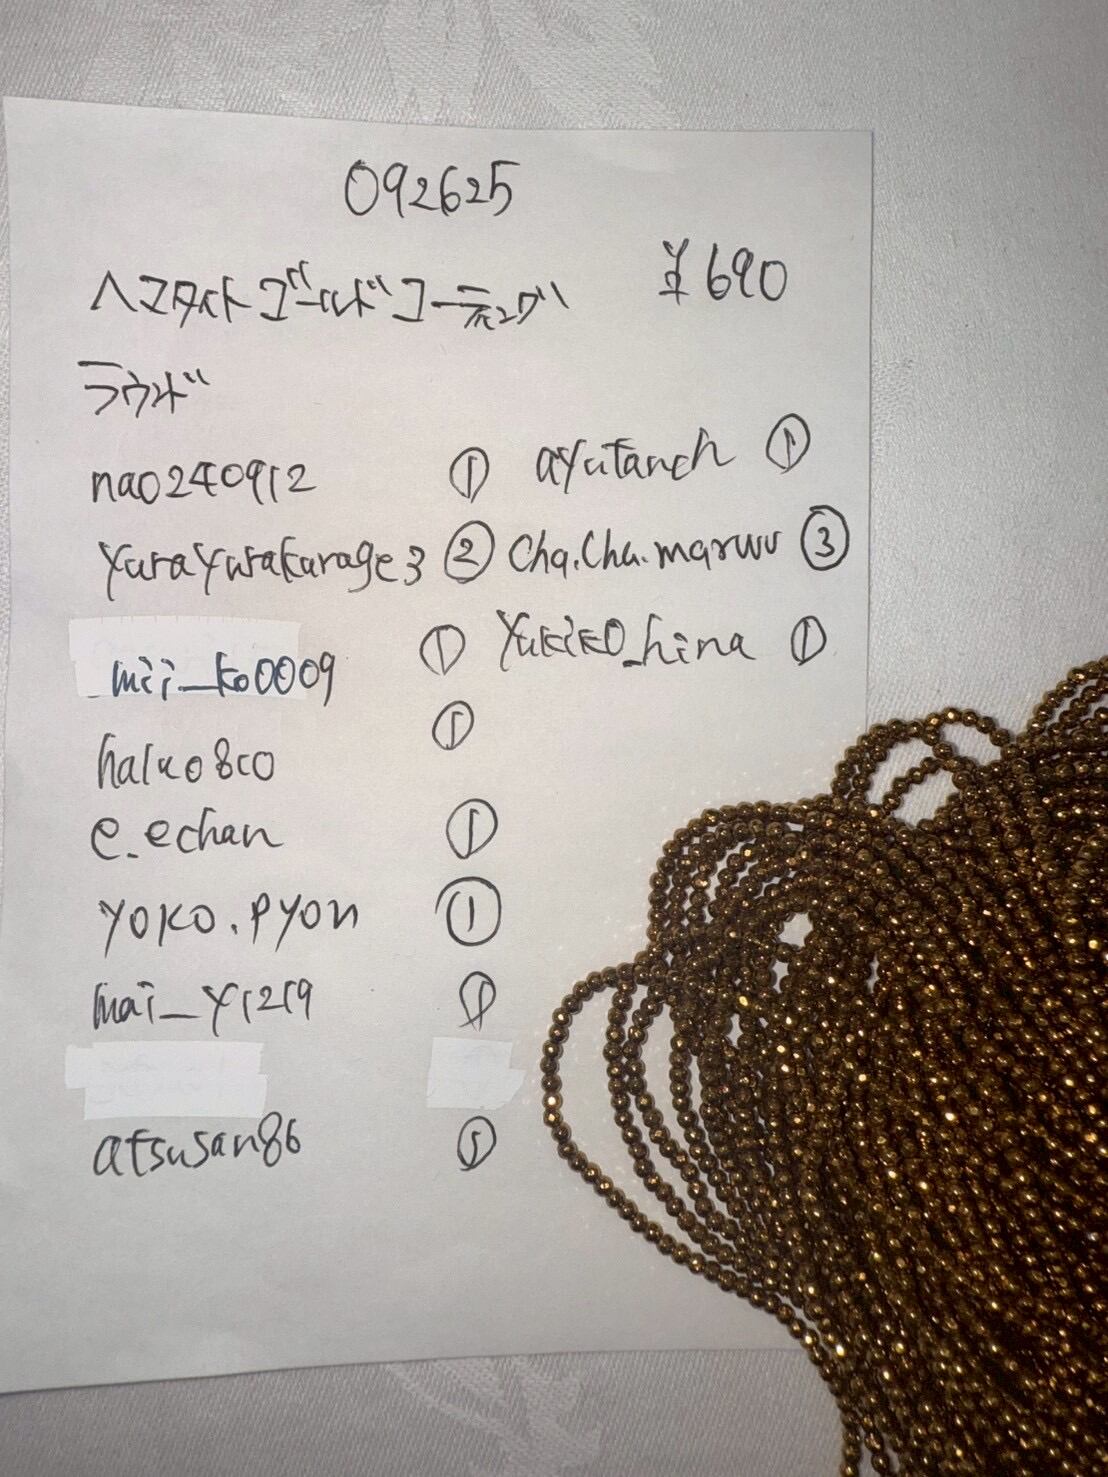 092625
ヘマタイトゴールドコーティング ¥690
ラウンド
nao240912 ① ayutanch ①
yurayurakurage3 ② cha.cha.maruu ③
mii_ko0009 ① yukiko_hina ①
haluo800 ①
e.echan ①
yoko.pyon ①
mai_y1219 ①
atsusan86 ①